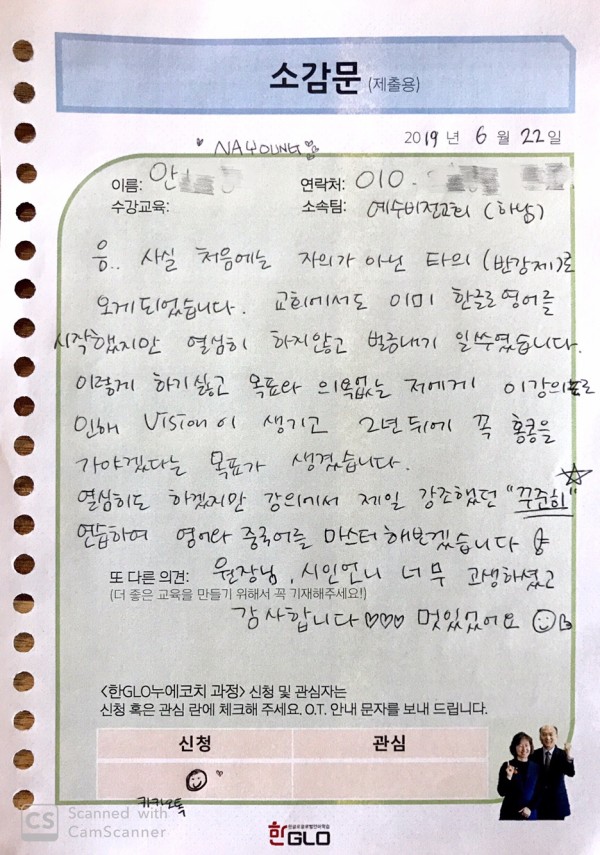 소감문 (제출용)
2019 년 6 월 22 일
NAYOUNG
이름: 안
연락처: 010.
수강교육:
소속팀: 예수비전교회 (하남)
음.. 사실 처음에는 자의가 아닌 타의 (반강제)로
오게되었습니다. 교회에서도 이미 한글로영어를
시작했지만 열심히 하지않고 벌금내기 일쑤였습니다.
이렇게 하기싫고 목표와 의욕없는 저에게 이강의로
인해 Vision이 생기고 2년뒤에 꼭 홍콩을
가야겠다는 목표가 생겼습니다.
열심히도 하겠지만 강의에서 제일 강조했던 "꾸준히"
연습하여 영어와 중국어를 마스터해보겠습니다
또 다른 의견: 원장님, 시인언니 너무 고생하셨고
(더 좋은 교육을 만들기 위해서 꼭 기재해주세요!)
감사합니다 ♡♡♡ 멋있었어요
<한GLO누에코치 과정> 신청 및 관심자는
신청 혹은 관심 란에 체크해 주세요. O.T. 안내 문자를 보내 드립니다.
신청
관심
카카오톡
CS Scanned with
CamScanner
한GLO